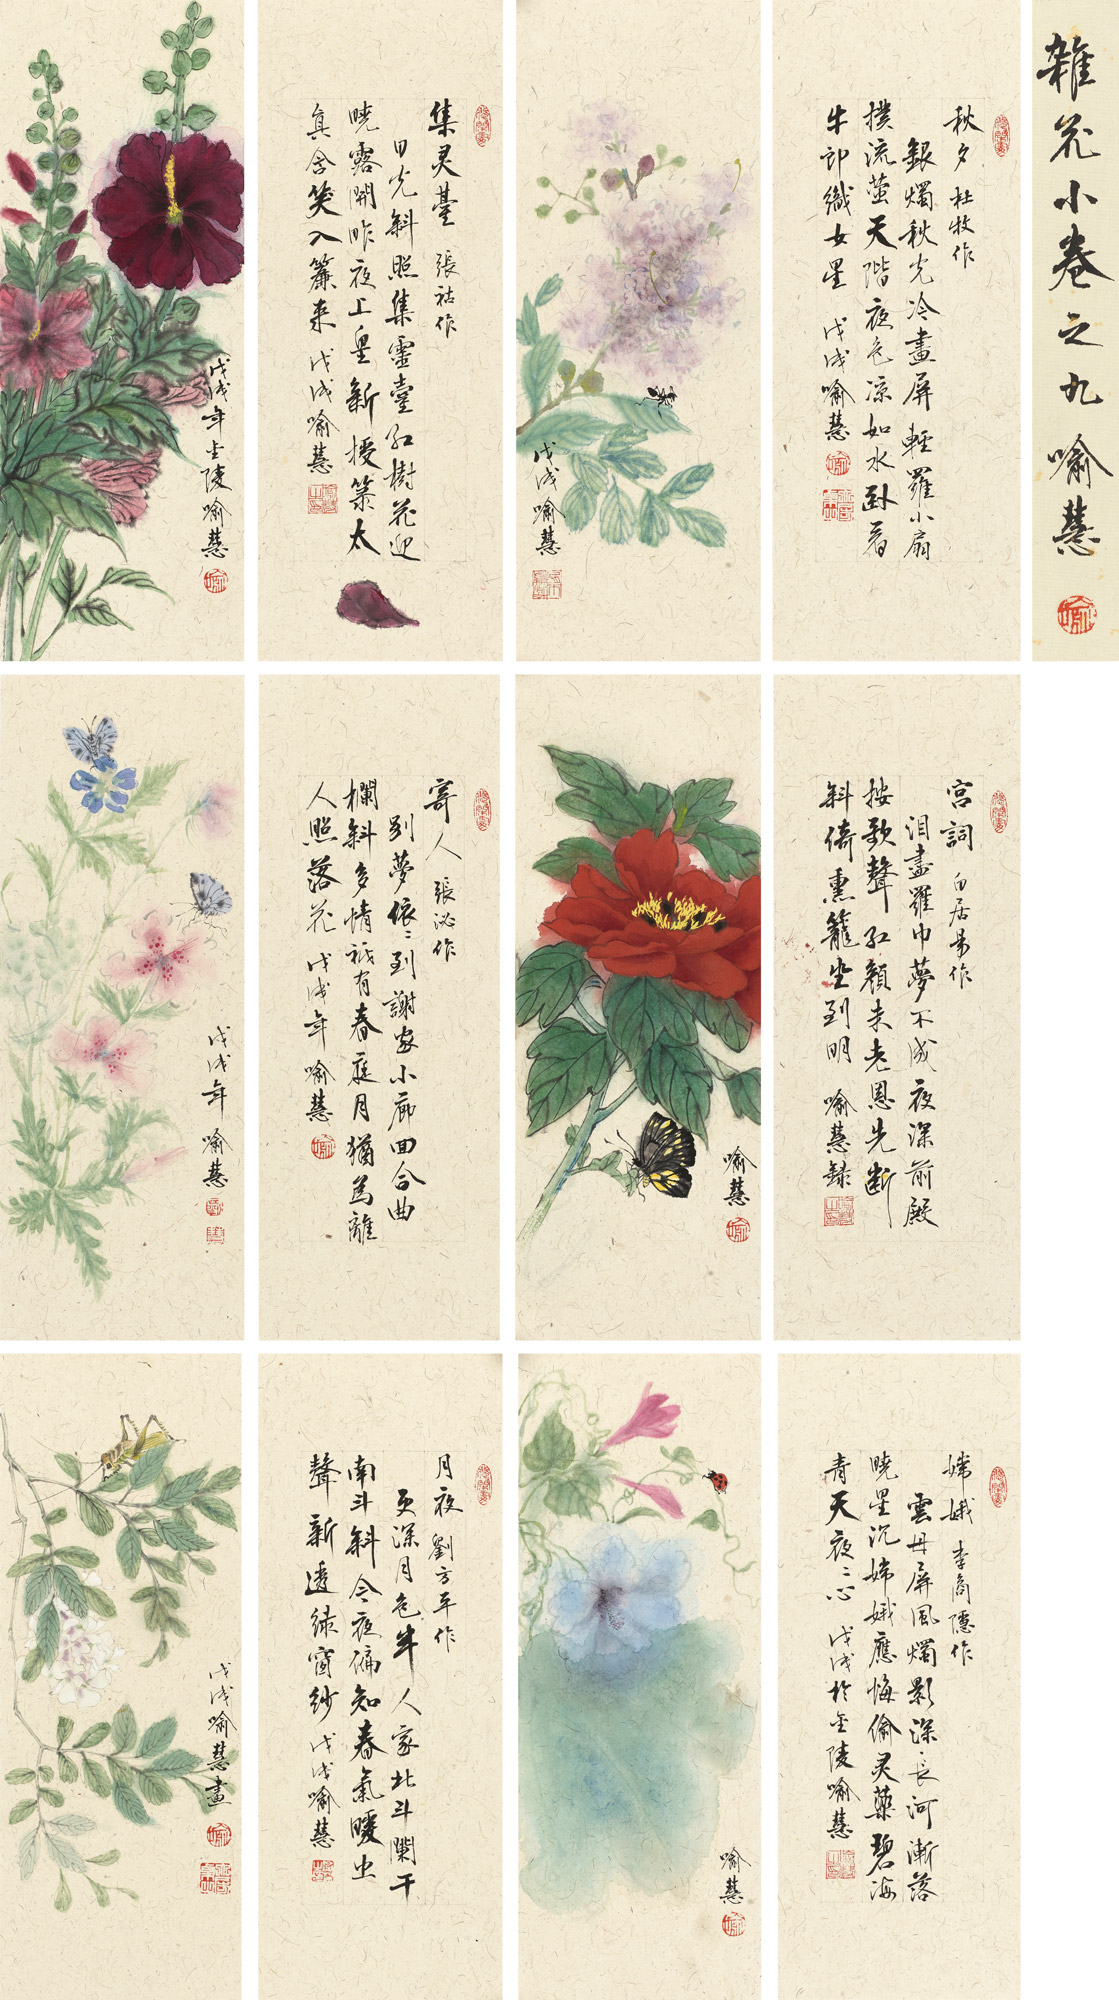 雜花小卷之九 喻慧
秋夕 杜牧作
銀燭秋光冷畫屏輕羅小扇
撲流萤天階夜色凉如水卧看
牛郎織女星 戊戌喻慧
戊戌喻慧
集灵臺 張祜作
日光斜照集靈臺红樹花迎
曉露開昨夜上皇新授箓太
真含笑入簾来 戊戌喻慧
戊戌年金陵喻慧
宫詞 白居易作
泪盡羅巾夢不成夜深前殿
按歌聲红顔未老恩先断
斜倚熏籠坐到明 喻慧録
喻慧
寄人 張泌作
别夢依〻到謝家小廊回合曲
欄斜多情祗有春庭月猶為離
人照落花 戊戌年 喻慧
戊戌年 喻慧
嫦娥 李商隱作
雲母屏風燭影深長河漸落
曉星沉嫦娥應悔偷灵藥碧海
青天夜〻心 戊戌於金陵喻慧
喻慧
月夜 劉方平作
更深月色半人家北斗闌干
南斗斜今夜偏知春氣暖虫
聲新透緑窗纱 戊戌喻慧
戊戌喻慧畫